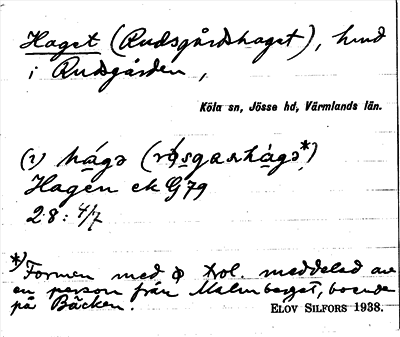 Haget (Rudsgårdshaget), hmd
i Rudsgården,
Köla sn, Jösse hd, Värmlands län.
(1) hágə (
Hagen ek G79
28: 4/7
*) Formen med ϕ trol. meddelad av
en person från Malmberget, boende
på Bäcken.
ELOV SILFORS 1938.